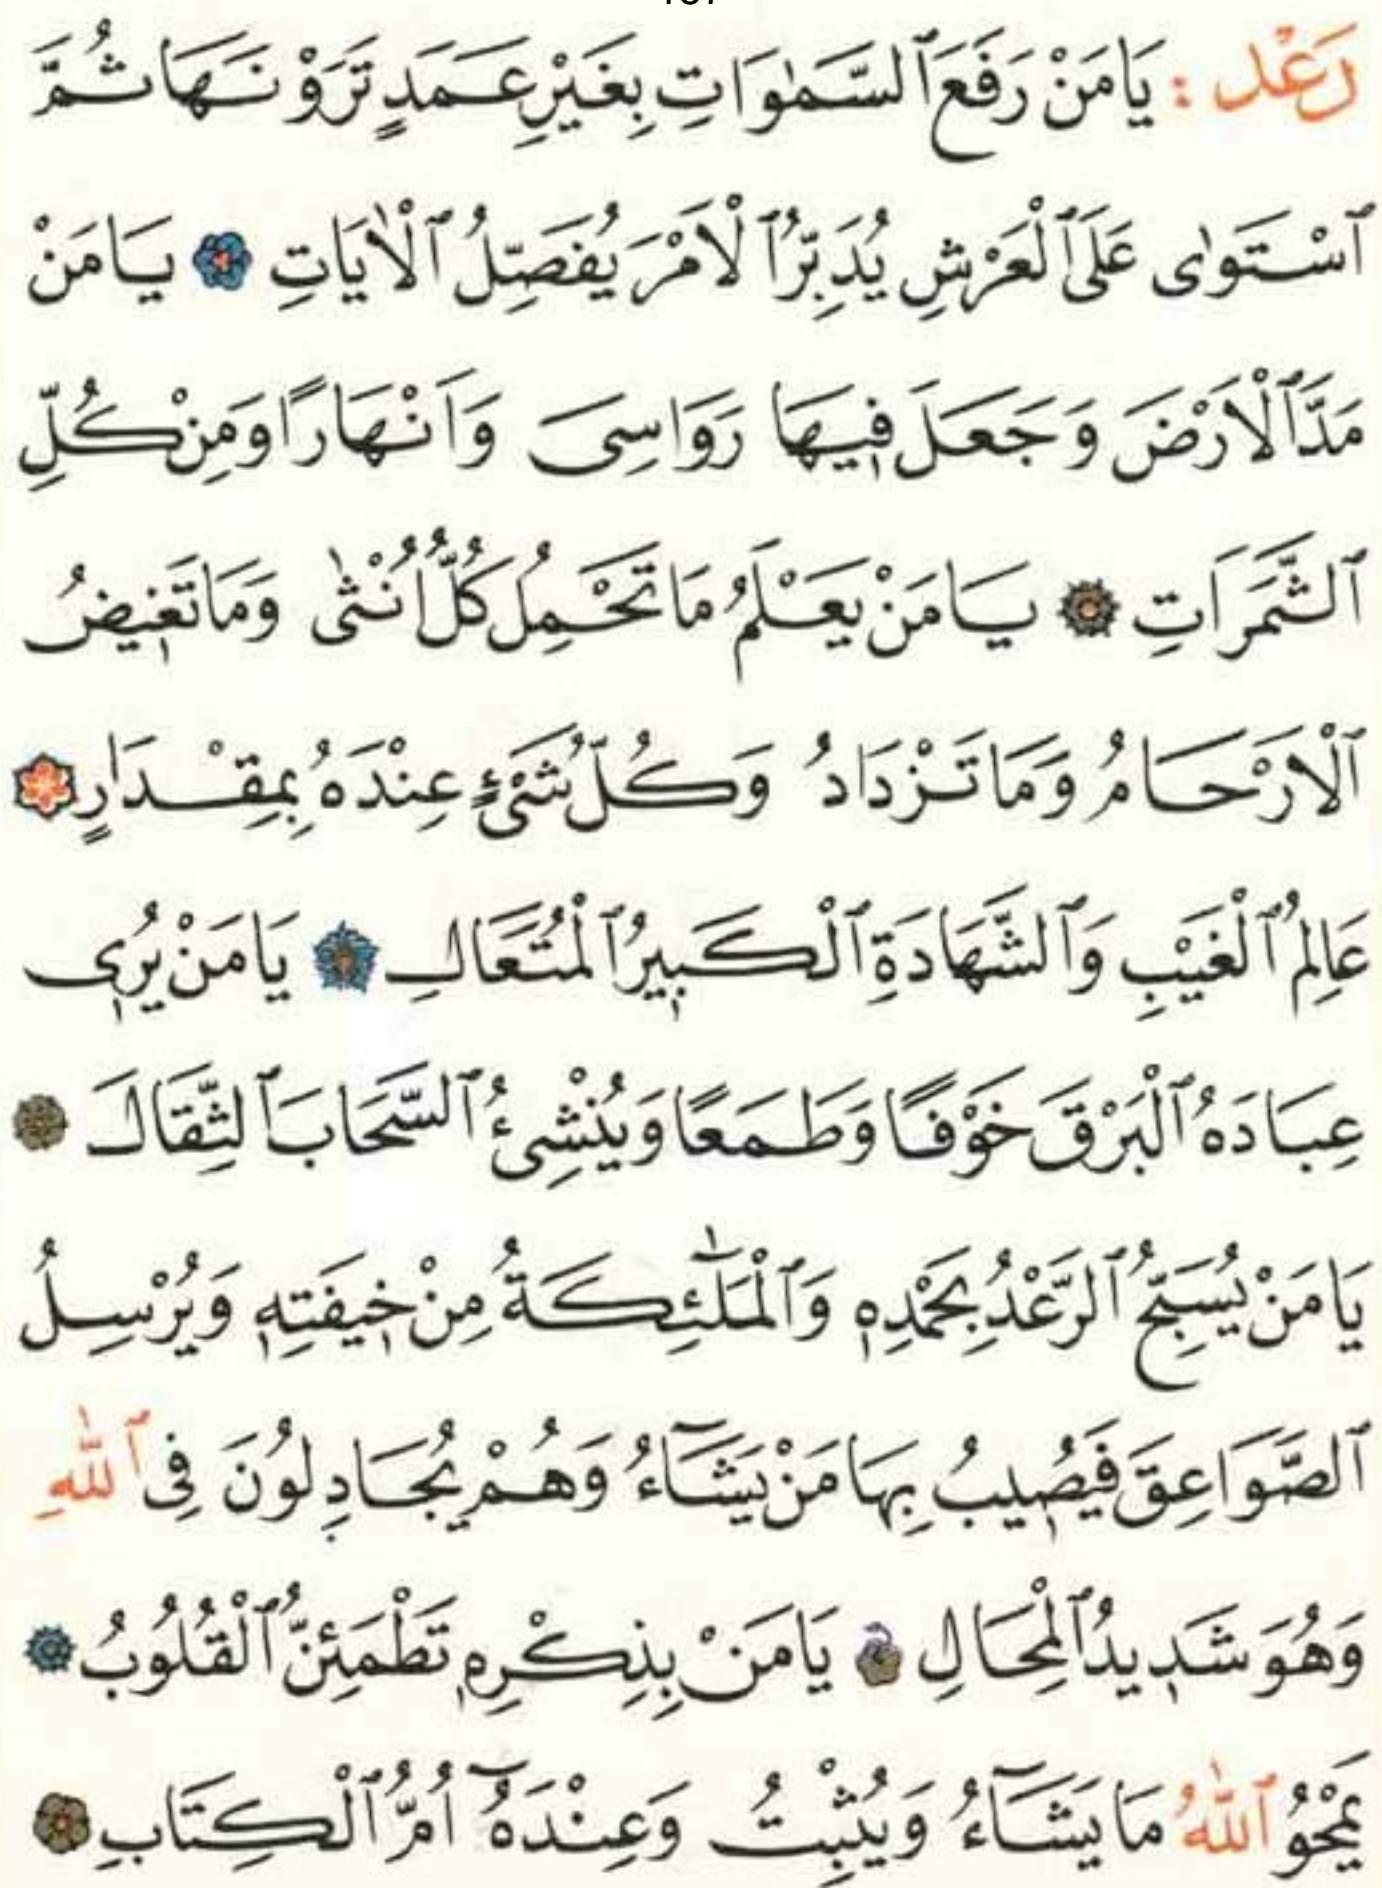 رَعْد : يَامَنْ رَفَعَ ٱلسَّمٰوَاتِ بِغَيْرِ عَمَدٍ تَرَوْنَهَا ثُمَّ
ٱسْتَوٰى عَلَى ٱلْعَرْشِ يُدَبِّرُ ٱلْاَمْرَ يُفَصِّلُ ٱلْاٰيَاتِ يَامَنْ
مَدَّ ٱلْاَرْضَ وَجَعَلَ فِيهَا رَوَاسِىَ وَاَنْهَارًا وَمِنْ كُلِّ
ٱلثَّمَرَاتِ يَامَنْ يَعْلَمُ مَا تَحْمِلُ كُلُّ اُنْثٰى وَمَا تَغِيضُ
ٱلْاَرْحَامُ وَمَا تَزْدَادُ وَكُلُّ شَىْءٍ عِنْدَهُ بِمِقْدَارٍ
عَالِمُ ٱلْغَيْبِ وَٱلشَّهَادَةِ ٱلْكَبِيرُ ٱلْمُتَعَالِ يَامَنْ يُرِى
عِبَادَهُ ٱلْبَرْقَ خَوْفًا وَطَمَعًا وَيُنْشِئُ ٱلسَّحَابَ ٱلثِّقَالَ
يَامَنْ يُسَبِّحُ ٱلرَّعْدُ بِحَمْدِهِ وَٱلْمَلٰٓئِكَةُ مِنْ خِيفَتِهِ وَيُرْسِلُ
ٱلصَّوَاعِقَ فَيُصِيبُ بِهَا مَنْ يَشَٓاءُ وَهُمْ يُجَادِلُونَ فِى ٱللّٰهِ
وَهُوَ شَدِيدُ ٱلْمِحَالِ يَامَنْ بِذِكْرِهِ تَطْمَئِنُّ ٱلْقُلُوبُ
يَمْحُو ٱللّٰهُ مَا يَشَٓاءُ وَيُثْبِتُ وَعِنْدَهُٓ اُمُّ ٱلْكِتَابِ